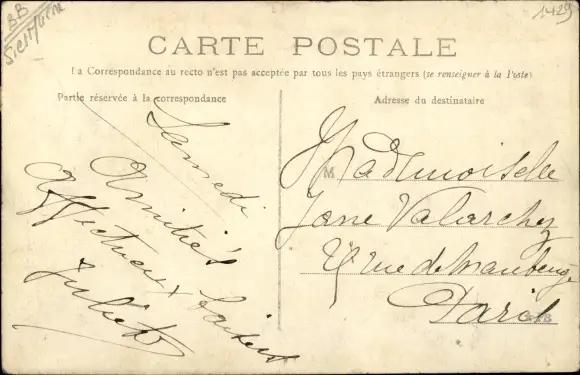 BB
1429
CARTE POSTALE
La Correspondance au recto n'est pas acceptée par tous les pays étrangers (se renseigner à la Poste)
Partie réservée à la correspondance
Adresse du destinataire
Samedi
Amitiés
Affectueux baisers
Juliette
M
Mademoiselle
Jane Valarchez
rue de Maubeuge
Paris